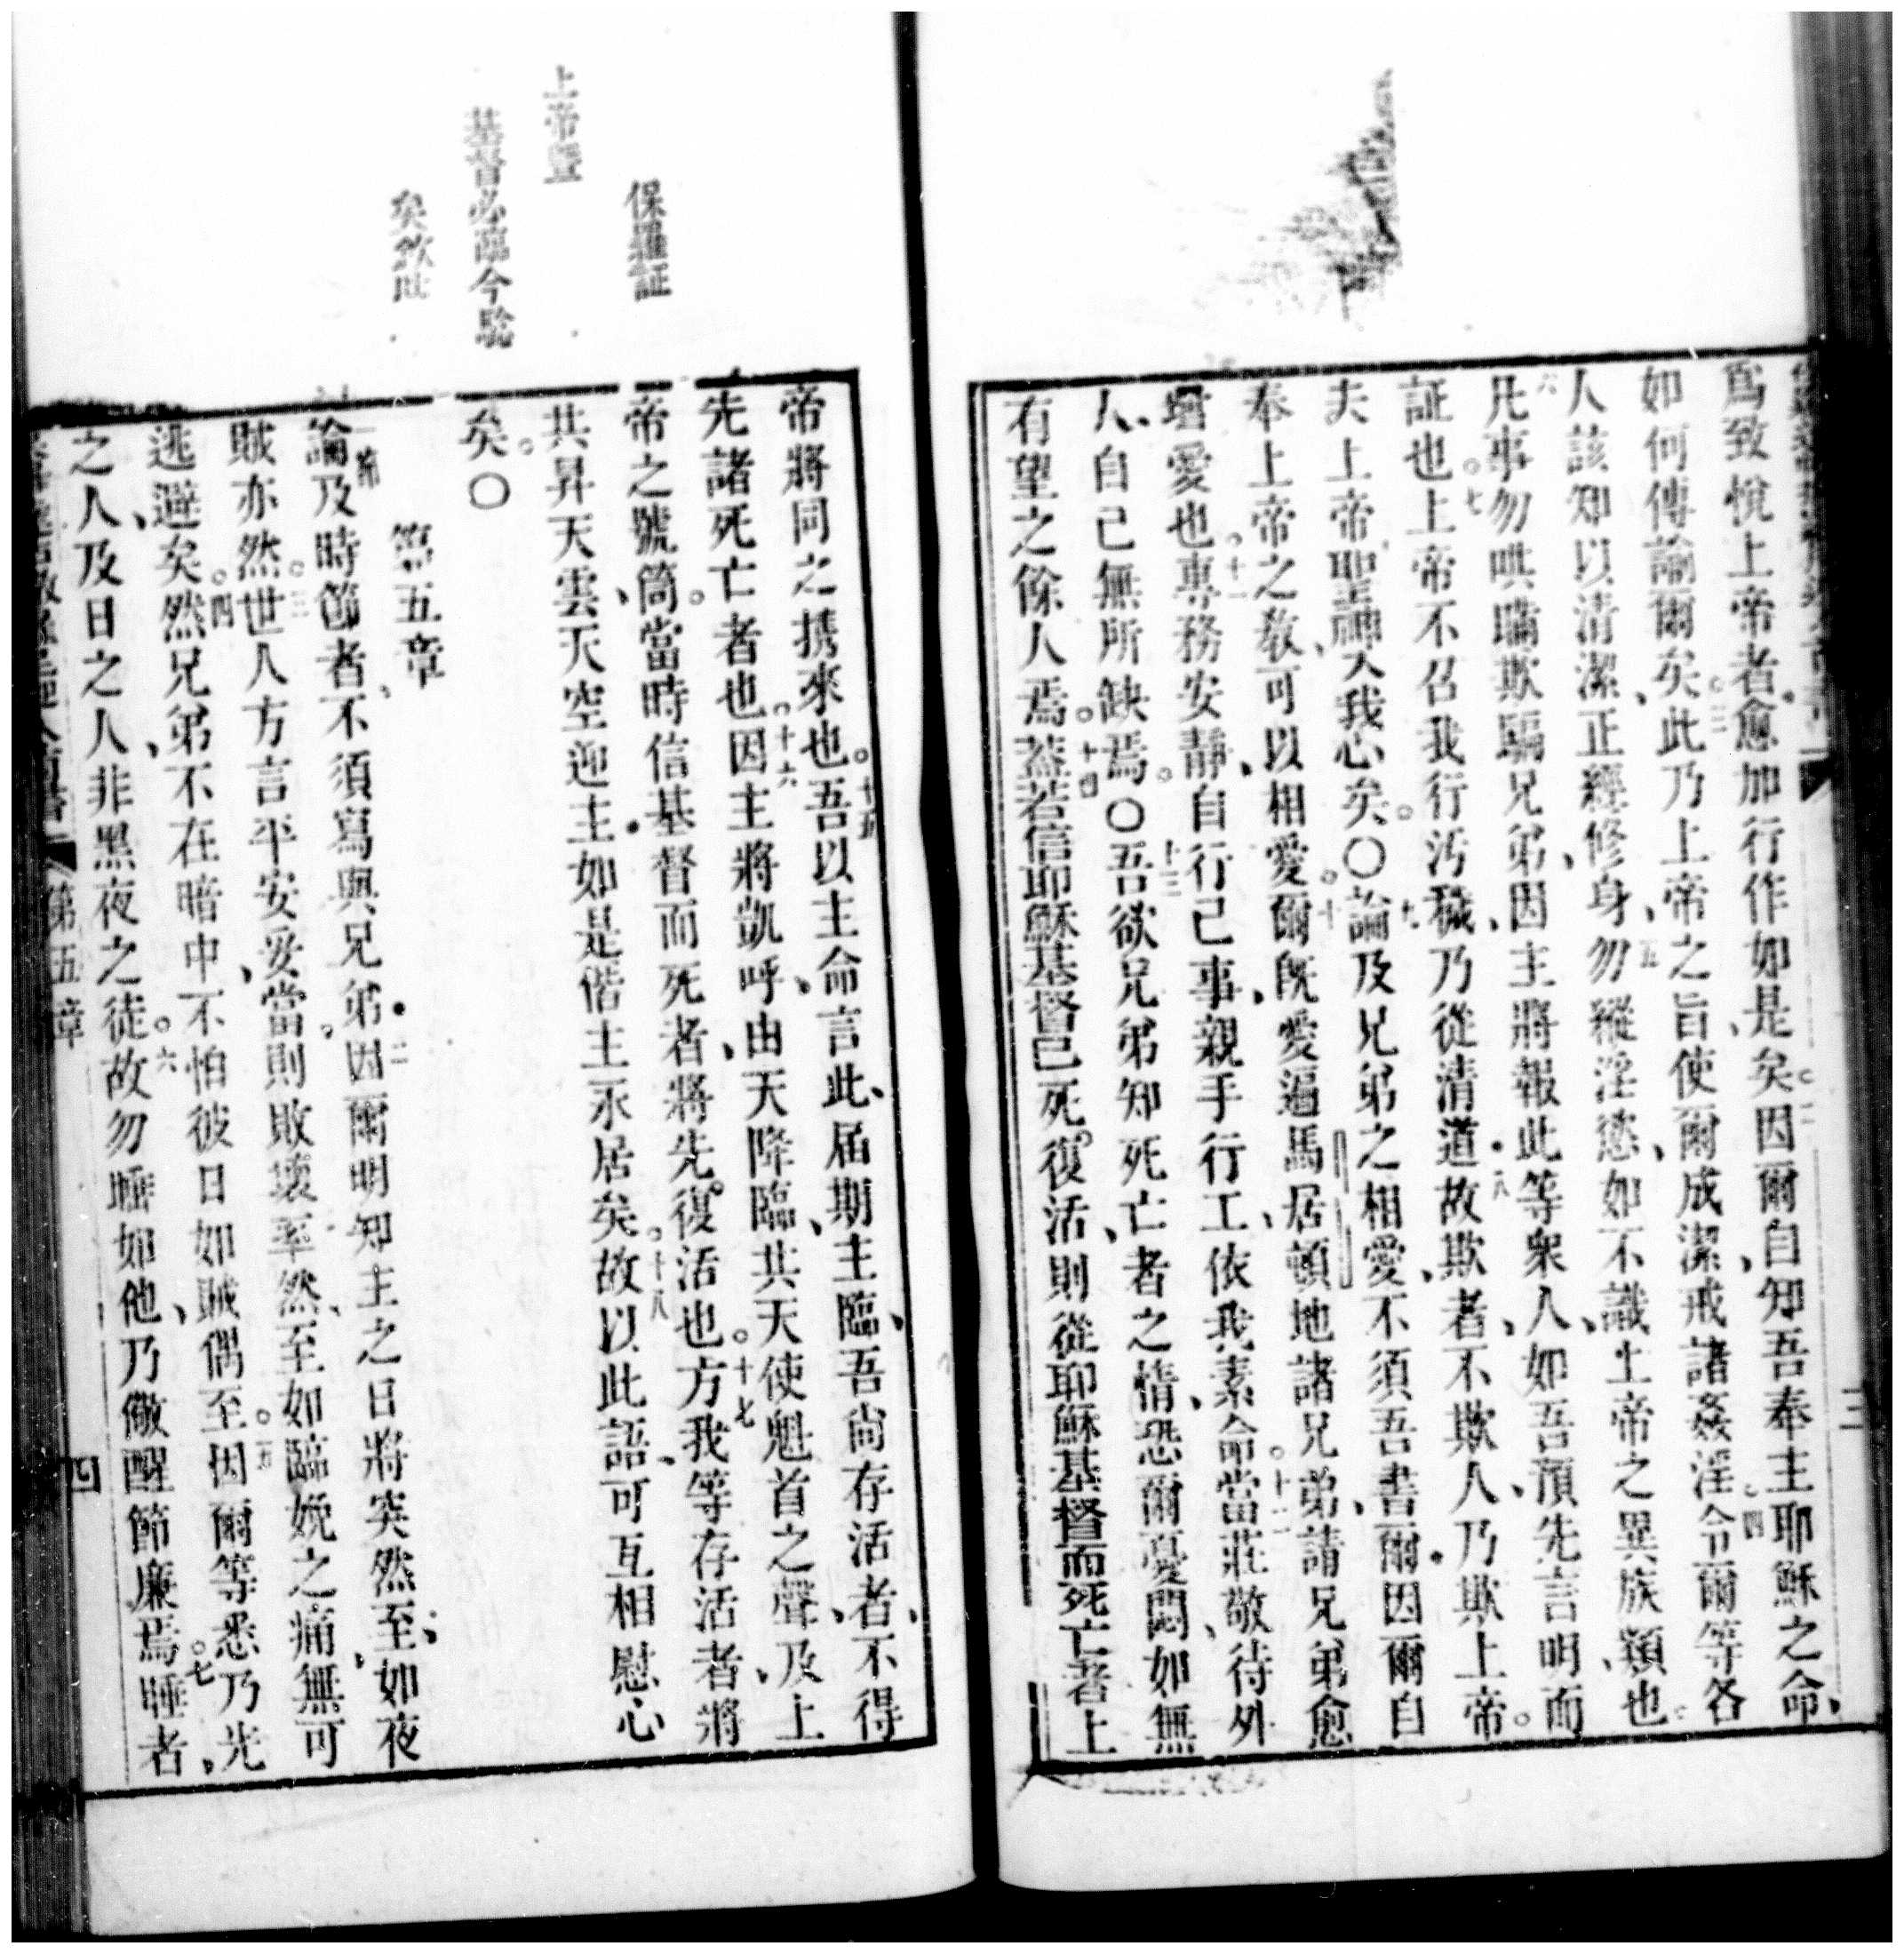 爲致悅上帝者愈加行作如是矣。二因爾自知吾奉主耶穌之命、
如何傳諭爾矣。三此乃上帝之旨、使爾成潔、戒諸姦淫、四令爾等各
人該知以清潔、正經修身、五勿縱淫慾、如不識上帝之異族類也。
六凡事勿哄瞞欺騙兄弟、因主將報此等衆人、如吾預先言明而
証也。七上帝不召我行汚穢、乃從清道。八故欺者、不欺人、乃欺上帝。
夫上帝聖神入我心矣。〇九論及兄弟之相愛、不須吾書爾、因爾自
奉上帝之敎、可以相愛。十爾旣愛遍馬居頓地諸兄弟、請兄弟愈
增愛也。十一專務安靜、自行己事、親手行工、依我素命。十二當莊敬待外
人、自己無所缺焉。〇十三吾欲兄弟知死亡者之情、恐爾憂悶、如無
有望之餘人焉。十四蓋若信耶穌基督已死。復活、則從耶穌基督而死亡者上
保羅証
上帝曁
基督必臨今騐
矣救世
帝將同之携來也。十五吾以主命言此、屆期主臨、吾尙存活者、不得
先諸死亡者也。十六因主將凱呼、由天降臨、共天使魁首之聲、及上
帝之號筒。當時信基督而死者、將先。復活也。十七方我等存活者、將
共昇天雲、天空迎主。如是偕主永居矣。十八故以此語、可互相慰心
矣。〇
第五章
一節論及時節者、不須寫與兄弟。二因爾明知主之日將突然至、如夜
賊亦然。三世人方言平安妥當、則敗壞率然、至如臨娩之痛、無可
逃避矣。四然兄弟不在暗中、不怕彼日如賊偶至。五因爾等悉乃光
之人、及日之人、非黑夜之徒。六故勿睡如他、乃儆醒節廉焉。七睡者、
第五章
四